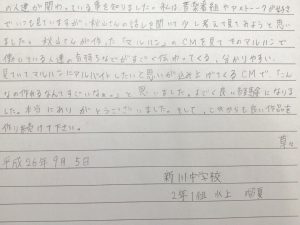 の人達が関わっている事を知りました。私は音楽番組やアメトークが好き
でいつも見ていますが、秋山さんの話しを聞いて少し考えて見てみようと思い
ました。秋山さんが作った「マルハン」のCMを見てそのマルハンで
働いている人達の気持ちなどがすごく伝わってくる、分かりやすい、
見ていてマルハンにアルバイトしたいと思いが込み上げてくるCMで「こん
なの作れるなんてすごいなぁ。」と思いました。すごく良い経験になりま
した。本当にありがとうございました。そして、これからも良い作品を
作り続けて下さい。
草々
平成26年9月5日
新川中学校
2年1組 水上